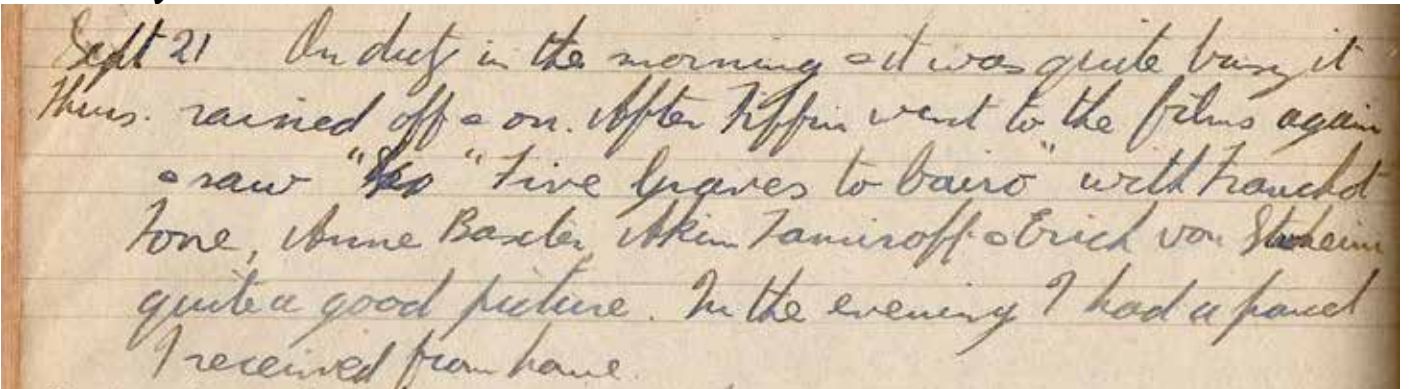 Sept 21 On duty in the morning & it was quite busy it
Thurs. rained off & on. After Tiffin went to the films again
& saw " "Five Graves to Cairo" with Franchot
Tone, Anne Baxter, Akim Tamiroff & Erich von Stroheim
quite a good picture. In the evening I had a parcel
I received from home.